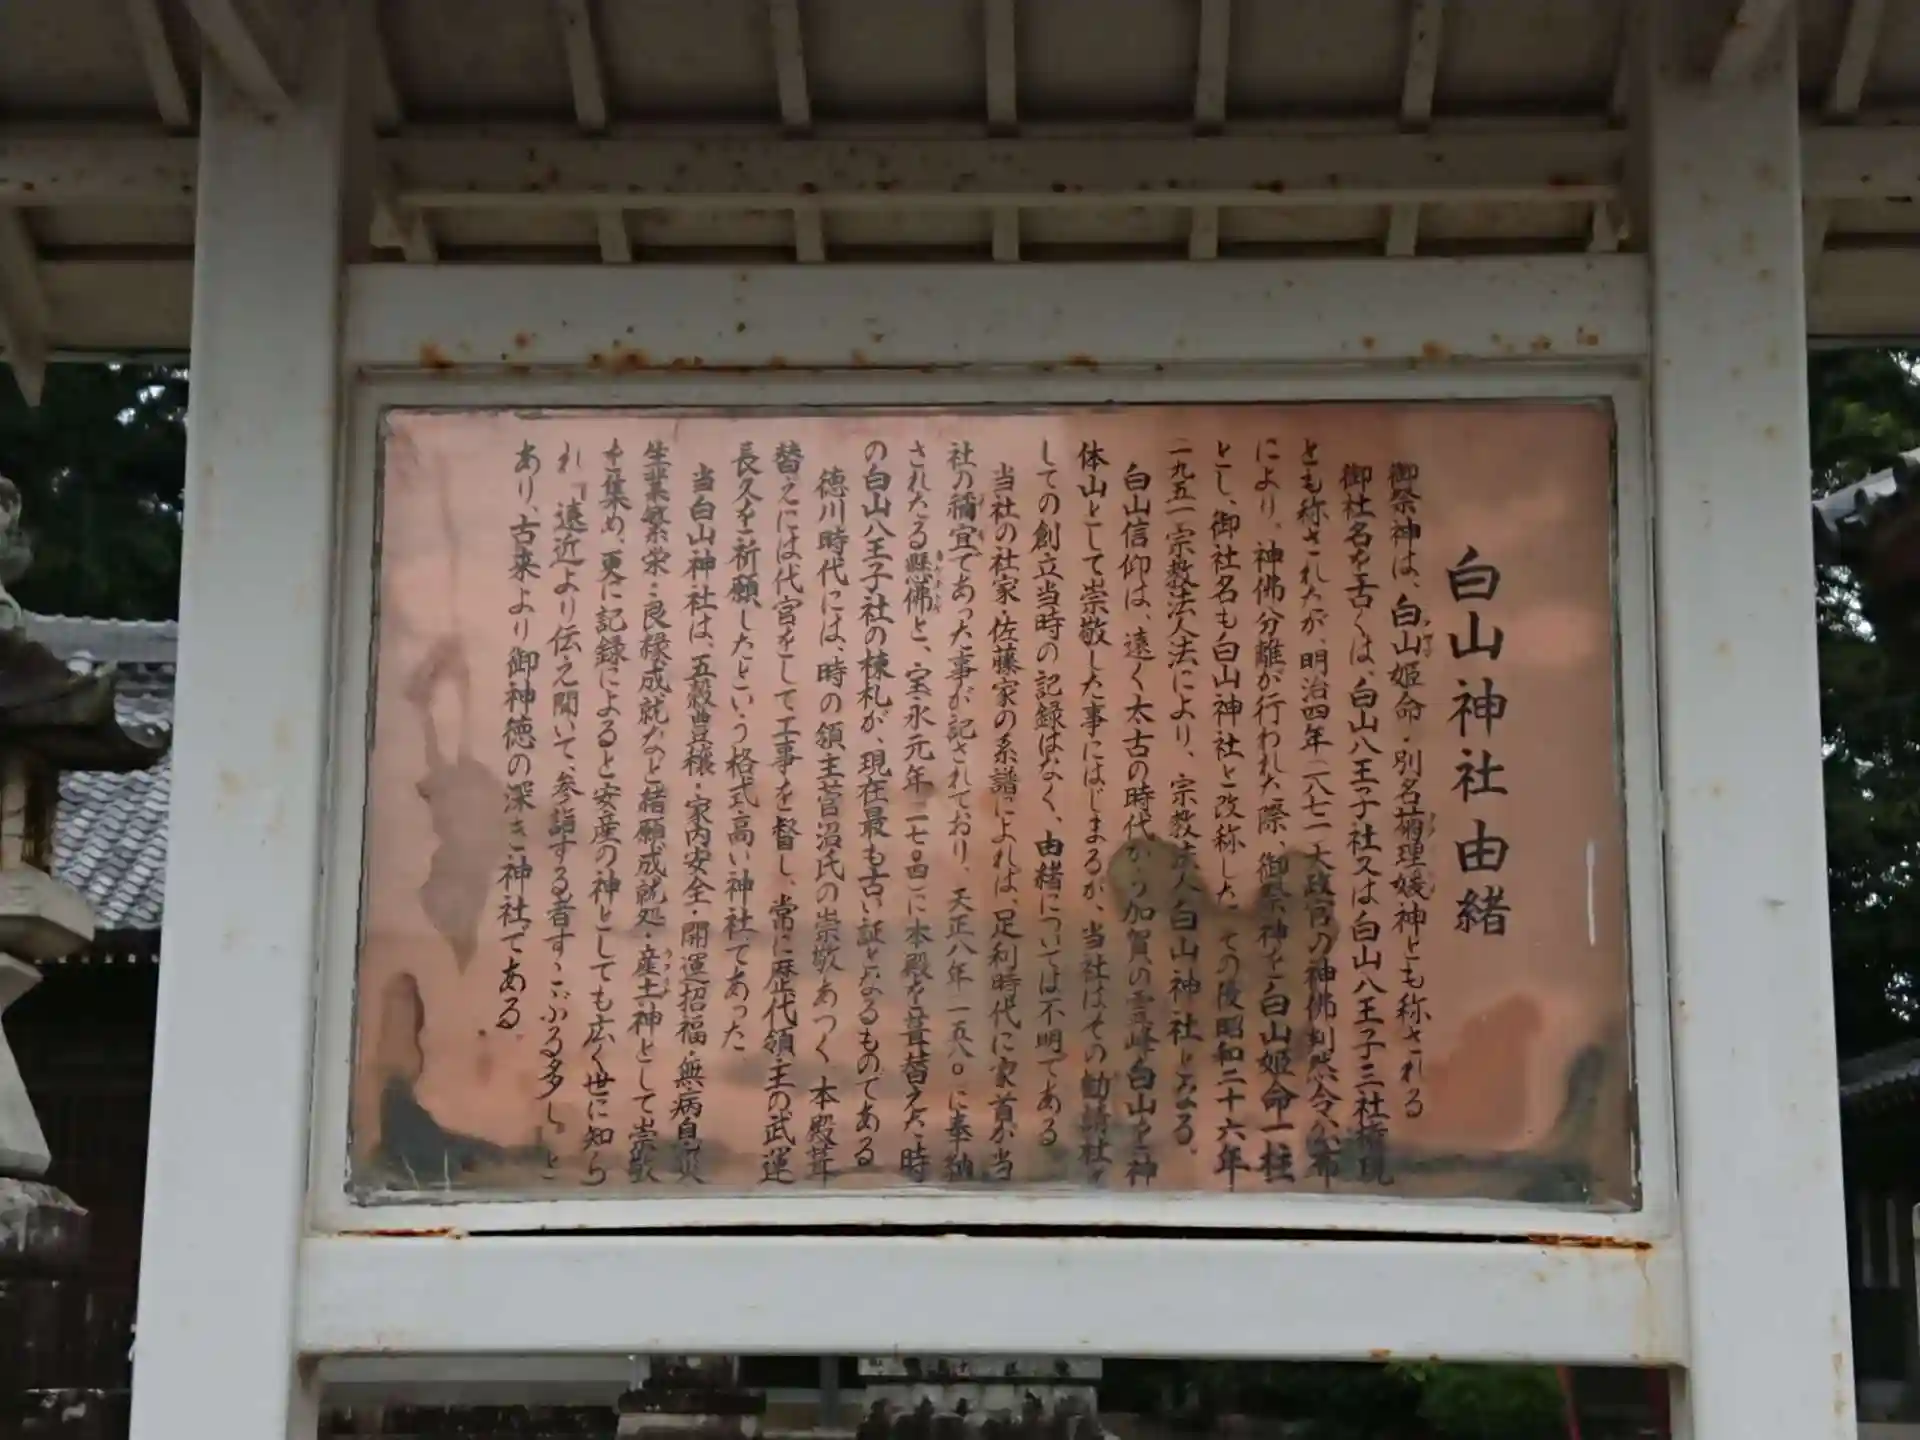 白山神社由緒
御祭神は、白山姫命・別名菊理媛神とも称される
御社名を古くは、白山八王子社又は白山八王子三社権現
とも称されたが、明治四年一八七一大政官の神佛判然令公布
により、神佛分離が行われた際、御祭神を白山姫命一柱
とし、御社名も白山神社と改称した その後昭和二十六年
一九五一宗教法人法により、宗教法人白山神社となる。
白山信仰は、遠く太古の時代から加賀の霊峰白山を神
体山として崇敬した事にはじまるが、当社はその勧請社と
しての創立当時の記録はなく、由緒については不明である
当社の社家・佐藤家の系譜によれば、足利時代に家首が当
社の禰宜であった事が記されており、天正八年一五八〇に奉納
されたる懸佛と、宝永元年一七〇四に本殿を葺替えた時
の白山八王子社の棟札が、現在最も古い証となるものである
徳川時代には、時の領主菅沼氏の崇敬あつく、本殿葺
替えには代官をして工事を督し、常に歴代領主の武運
長久を祈願したという格式高い神社であった
当白山神社は、五穀豊穣・家内安全・開運招福・無病息災
生業繁栄・良縁成就など諸願成就処・産土神として崇敬
を集め、更に記録によると安産の神としても広く世に知ら
れ『遠近より伝え聞いて、参詣する者すこぶる多し。』と
あり、古来より御神徳の深き神社である